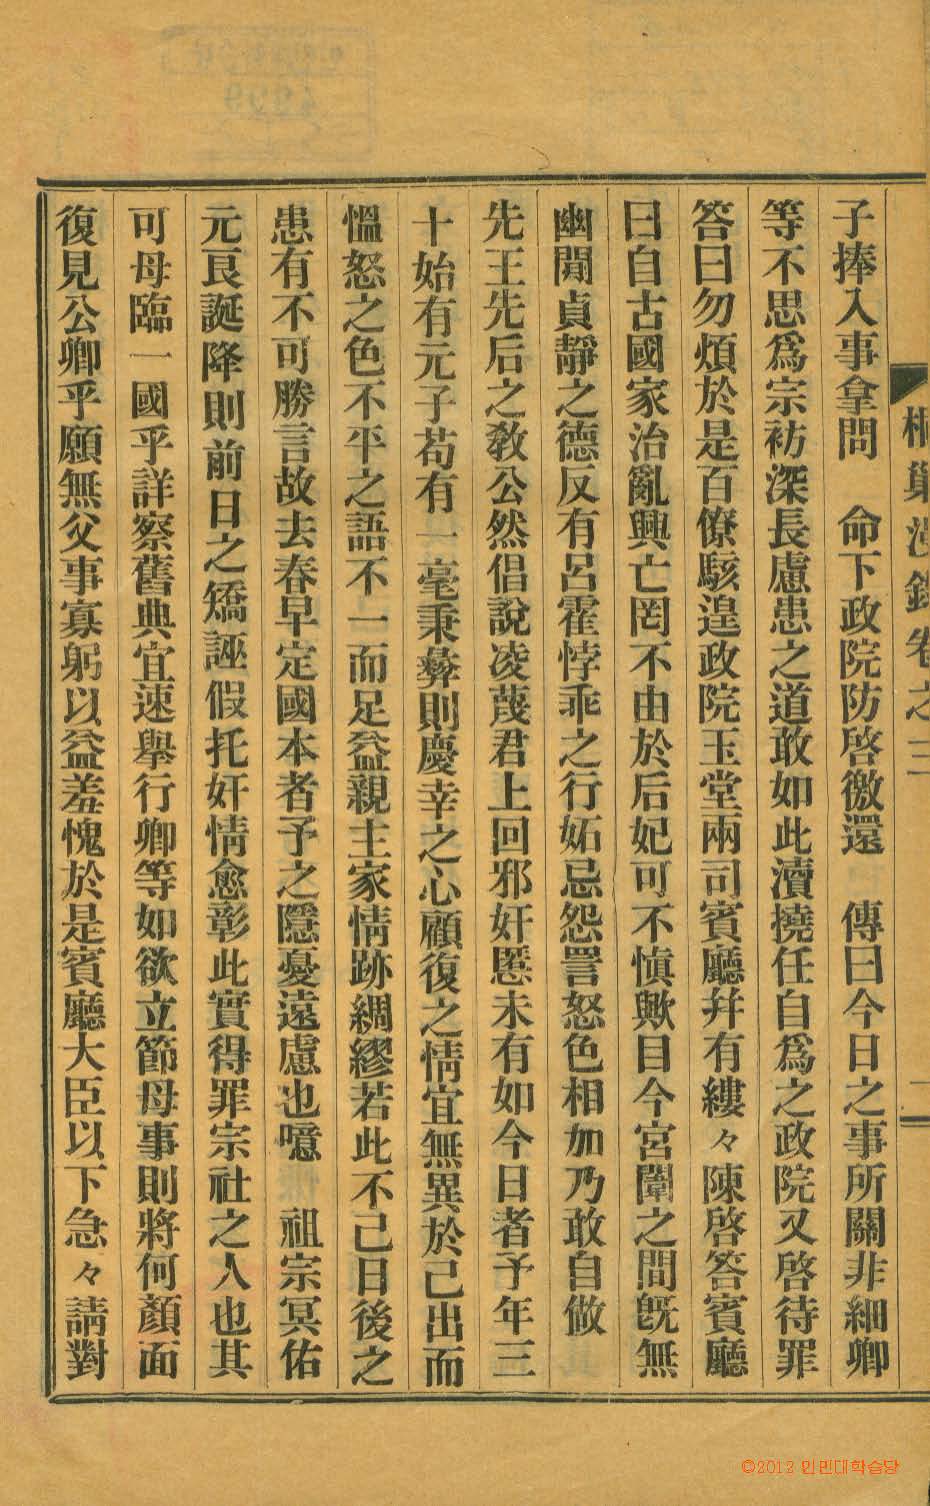 桐巢漫錄卷之三
一
子捧入事拿問　命下政院防啓徼還　傳曰今日之事所關非細卿
等不思爲宗祊深長慮患之道敢如此瀆撓任自爲之政院又啓待罪
答曰勿煩於是百僚駭遑政院玉堂兩司賓廳幷有縷々陳啓答賓廳
曰自古國家治亂興亡罔不由於后妃可不愼歟目今宮闈之間旣無
幽閒貞靜之德反有呂霍悖乖之行妬忌怨詈怒色相加乃敢自做
先王先后之敎公然倡說凌蔑君上回邪奸慝未有如今日者予年三
十始有元子苟有一毫秉彝則慶幸之心顧復之情宜無異於己出而
慍怒之色不平之語不一而足益親主家情跡綢繆若此不已日後之
患有不可勝言故去春早定國本者予之隱憂遠慮也噫　祖宗冥佑
元良誕降則前日之矯誣假托奸情愈彰此實得罪宗社之人也其
可母臨一國乎詳察舊典宜速擧行卿等如欲立節母事則將何顏面
復見公卿乎願無父事寡躬以益羞愧於是賓廳大臣以下急々請對
©2012 인민대학습당